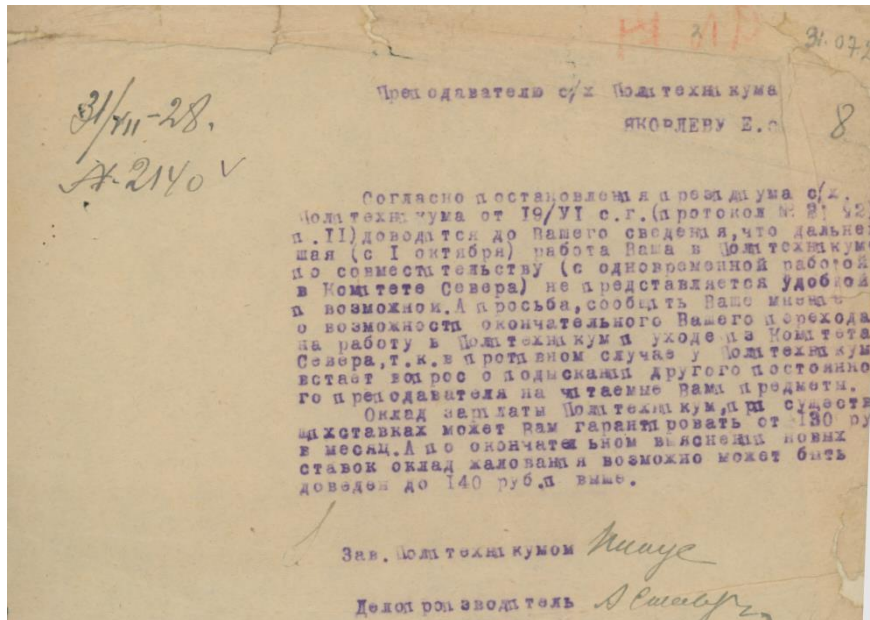 31.07.2
31/VII-28.
№ 2140 V
8
Преподавателю с/х Политехникума
ЯКОВЛЕВУ Е.
Согласно постановления президиума с/х.
Политехникума от I9/VI с.г.(протокол №
п.II)доводится до Вашего сведения,что дальней
шая (с I октября) работа Ваша в Политехникуме
по совместительству (с одновременной работой
в Комитете Севера) не представляется удобной
и возможной.А просьба,сообщить Ваше мнение
о возможности окончательного Вашего перехода
на работу в Политехникум и уходе из Комитета
Севера,т.к.в противном случае у Политехникум
встает вопрос о подыскании другого постоянно
го преподавателя на читаемые Вами предметы.
Оклад зарплаты Политехникум,при существ
щихставках может Вам гарантировать от 130 ру
в месяц.А по окончательном выяснении новых
ставок оклад жалования возможно может быть
доведен до I40 руб.и выше.
Зав.Политехникумом
Делопроизводитель